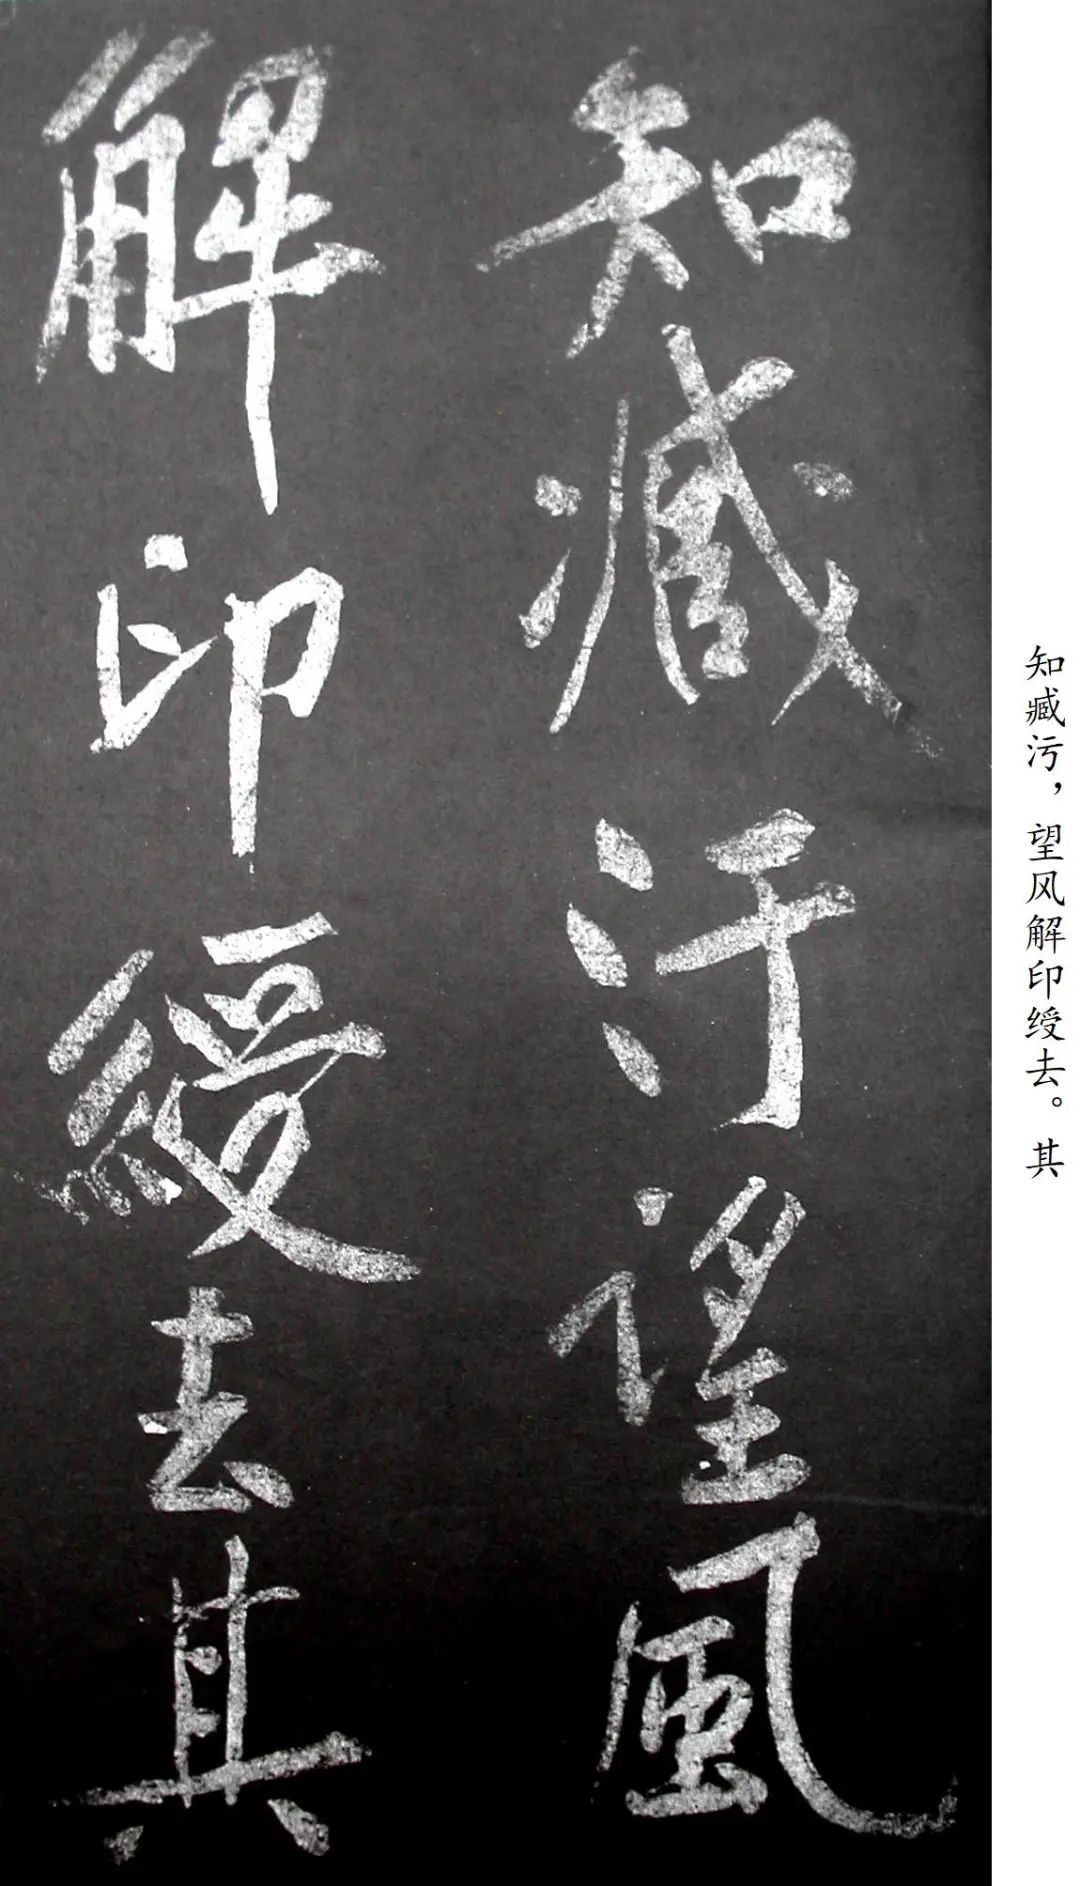 知臧汙望風
解印綬去其
知臧污，望风解印绶去。其